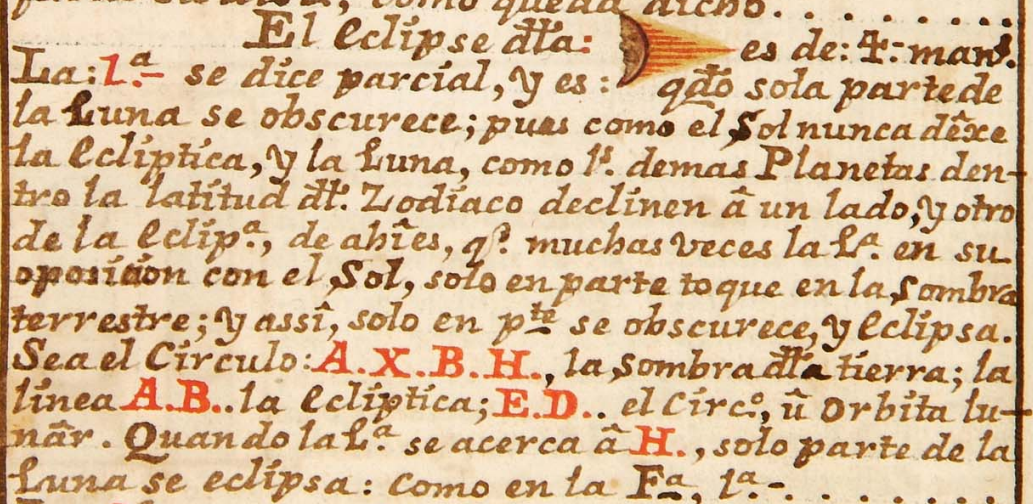 como queda dicho. . . . . . . .
El Eclipse dl̃a: es de: 4: man.s
La: 1.ª se dice parcial, y es: qdõ sola parte de
la Luna se obscurece; pues como el Sol nunca dêxe
la Ecliptica, y la Luna, como ls. demas Planetas den-
tro la latitud dl̃. Zodiaco declinen â un lado, y otro
de la Eclip.ª, de ahî es, q.e muchas veces la L.ª en su
oposicion con el Sol, solo en parte toque en la Sombra
terrestre; y assî, solo en p.te se obscurece, y Eclipsa.
Sea el Circulo: A.X.B.H., la Sombra dl̃a tierra; la
linea A.B.. la Ecliptica; E.D.. el Circ.º, û Orbita lu-
nâr. Quando la L.ª se acerca â H., solo parte de la
Luna se eclipsa: como en la F.ª, 1.ª-